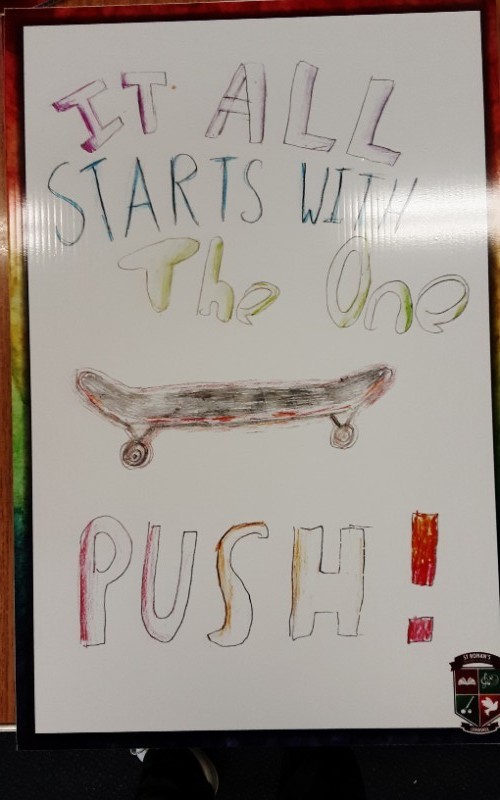 IT ALL
STARTS WITH
The One
PUSH!
ST RONAN'S